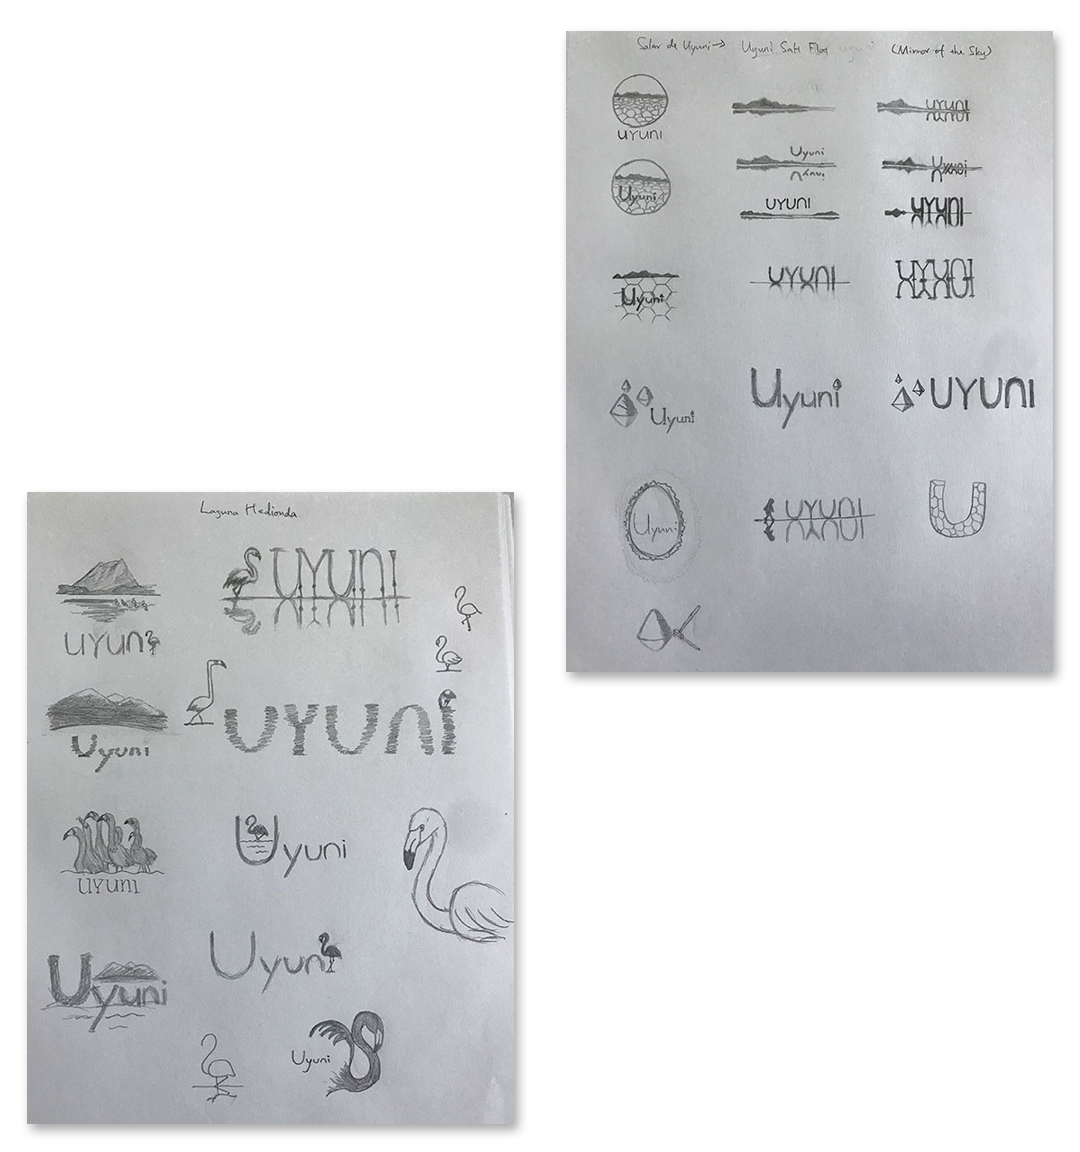 Salar de Uyuni → Uyuni Salt Flat (Mirror of the Sky)
UYUNI
UYUNI
Uyuni
Uyuni
UYUNI
Uyuni
UYUNI
UYUNI
Uyuni
UYUNI
UYUNI
Uyuni
Uyuni
UYUNI
Uyuni
UYUNI
U
Laguna Hedionda
UYUNI
UYUN
UYUNI
Uyuni
UYUNI
Uyuni
Uyuni
Uyuni
Uyuni